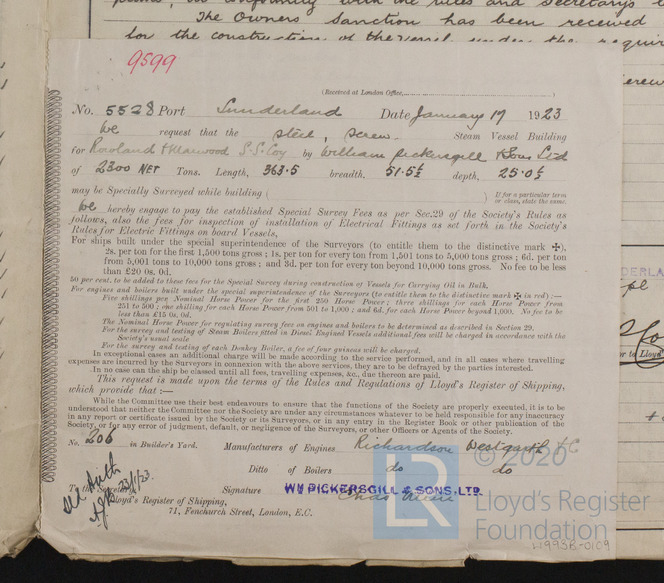 The Owners Sanction has been received
for the construction of the vessel under the
9599
(Received at London Office,
No. 5528 Port Sunderland Date January 17 1923
We request that the steel, screw Steam Vessel Building
for Rowland & Marwood S.S. Coy by William Pickersgill & Sons Ltd
of 2300 NET Tons. Length, 363.5 breadth. 51.5½ depth, 25.0½
may be Specially Surveyed while building ( ) If for a particular term or class, state the same.
We hereby engage to pay the established Special Survey Fees as per Sec.29 of the Society's Rules as
follows, also the fees for inspection of installation of Electrical Fittings as set forth in the Society's
Rules for Electric Fittings on board Vessels,
For ships built under the special superintendence of the Surveyors (to entitle them to the distinctive mark ✠),
2s. per ton for the first 1,500 tons gross; 1s. per ton for every ton from 1,501 tons to 5,000 tons gross; 6d. per ton
from 5,001 tons to 10,000 tons gross; and 3d. per ton for every ton beyond 10,000 tons gross. No fee to be less
than £20 0s. 0d.
50 per cent. to be added to these fees for the Special Survey during construction of Vessels for Carrying Oil in Bulk.
For engines and boilers built under the special superintendence of the Surveyors (to entitle them to the distinctive mark ✠ in red):—
Five shillings per Nominal Horse Power for the first 250 Horse Power; three shillings for each Horse Power from
251 to 500; one shilling for each Horse Power from 501 to 1,000; and 6d. for each Horse Power beyond 1,000. No fee to be
less than £15 0s. 0d.
The Nominal Horse Power for regulating survey fees on engines and boilers to be determined as described in Section 29.
For the survey and testing of Steam Boilers fitted in Diesel Engined Vessels additional fees will be charged in accordance with the
Society's usual scale
For the survey and testing of each Donkey Boiler, a fee of four guineas will be charged.
In exceptional cases an additional charge will be made according to the service performed, and in all cases where travelling
expenses are incurred by the Surveyors in connexion with the above services, they are to be defrayed by the parties interested.
In no case can the ship be classed until all fees, travelling expenses, &c., due thereon are paid.
This request is made upon the terms of the Rules and Regulations of Lloyd's Register of Shipping,
which provide that :—
While the Committee use their best endeavours to ensure that the functions of the Society are properly executed, it is to be
understood that neither the Committee nor the Society are under any circumstances whatever to be held responsible for any inaccuracy
in any report or certificate issued by the Society or its Surveyors, or in any entry in the Register Book or other publication of the
Society, or for any error of judgment, default, or negligence of the Surveyors, or other Officers or Agents of the Society.
No. 206 in Builder's Yard. Manufacturers of Engines Richardson Westgarth & C
Ditto of Boilers do do
To the Secretary, Signature WM PICKERSGILL & SONS. LTD.
Lloyd's Register of Shipping,
71, Fenchurch Street, London, E.C.
23/1/23.
© 2020
LR
Lloyd's Register
Foundation
W993B-0109